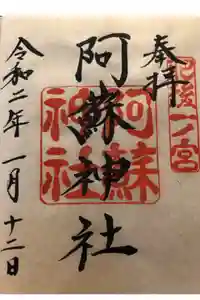 奉拝
肥後一ノ宮
阿蘇神社
阿蘇神社
令和二年一月十二日